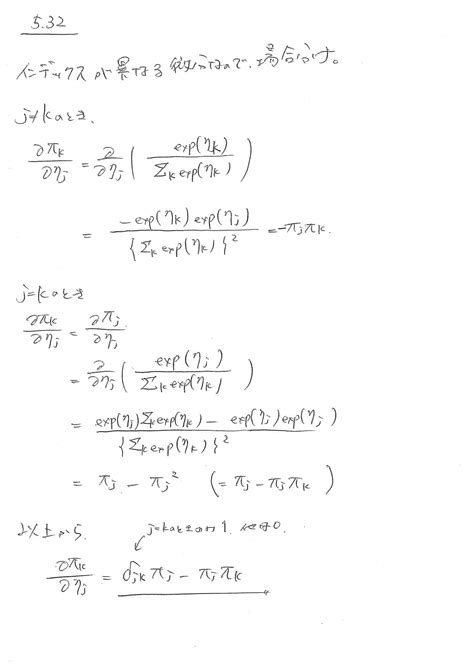 5.32
インデックスが異なる微分なので、場合分け。
j≠kのとき、
∂πk/∂ηj = ∂/∂ηj ( exp(ηk) / Σk exp(ηk) )
= -exp(ηk) exp(ηj) / {Σk exp(ηk)}² = -πjπk.
j=kのとき
∂πk/∂ηj = ∂πj/∂ηj
= ∂/∂ηj ( exp(ηj) / Σk exp(ηk) )
= exp(ηj)Σk exp(ηk) - exp(ηj)exp(ηj) / {Σk exp(ηk)}²
= πj - πj² (= πj - πjπk)
以上から、
j=kのときのみ1、他は0.
∂πk/∂ηj = δjk πj - πjπk